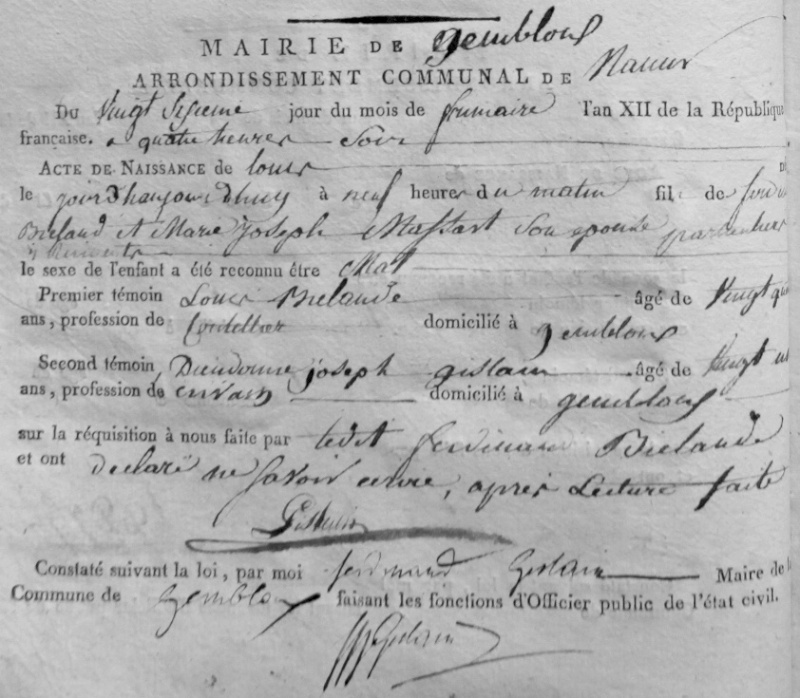 MAIRIE DE gembloux
ARRONDISSEMENT COMMUNAL DE Namur
Du vingt jour du mois de frumaire l'an XII de la République
française. a quatre heures soir
ACTE DE NAISSANCE de louis
le jour d'haujourdhuy à neuf heures du matin fil de
Bielande et Marie joseph Massart son epouse
le sexe de l'enfant a été reconnu être Mal
Premier témoin Louis Bielande âgé de vingt
ans, profession de Coutellier domicilié à gembloux
Second témoin, Dieudonne joseph gislain âgé de vingt
ans, profession de domicilié à gembloux
sur la réquisition à nous faite par ledit ferdinand Bielande
et ont declaré ne savoir ecrire, apres Lecture faite
Constaté suivant la loi, par moi ferdinand Gislain Maire de
Commune de Gembloux faisant les fonctions d'Officier public de l'état civil.